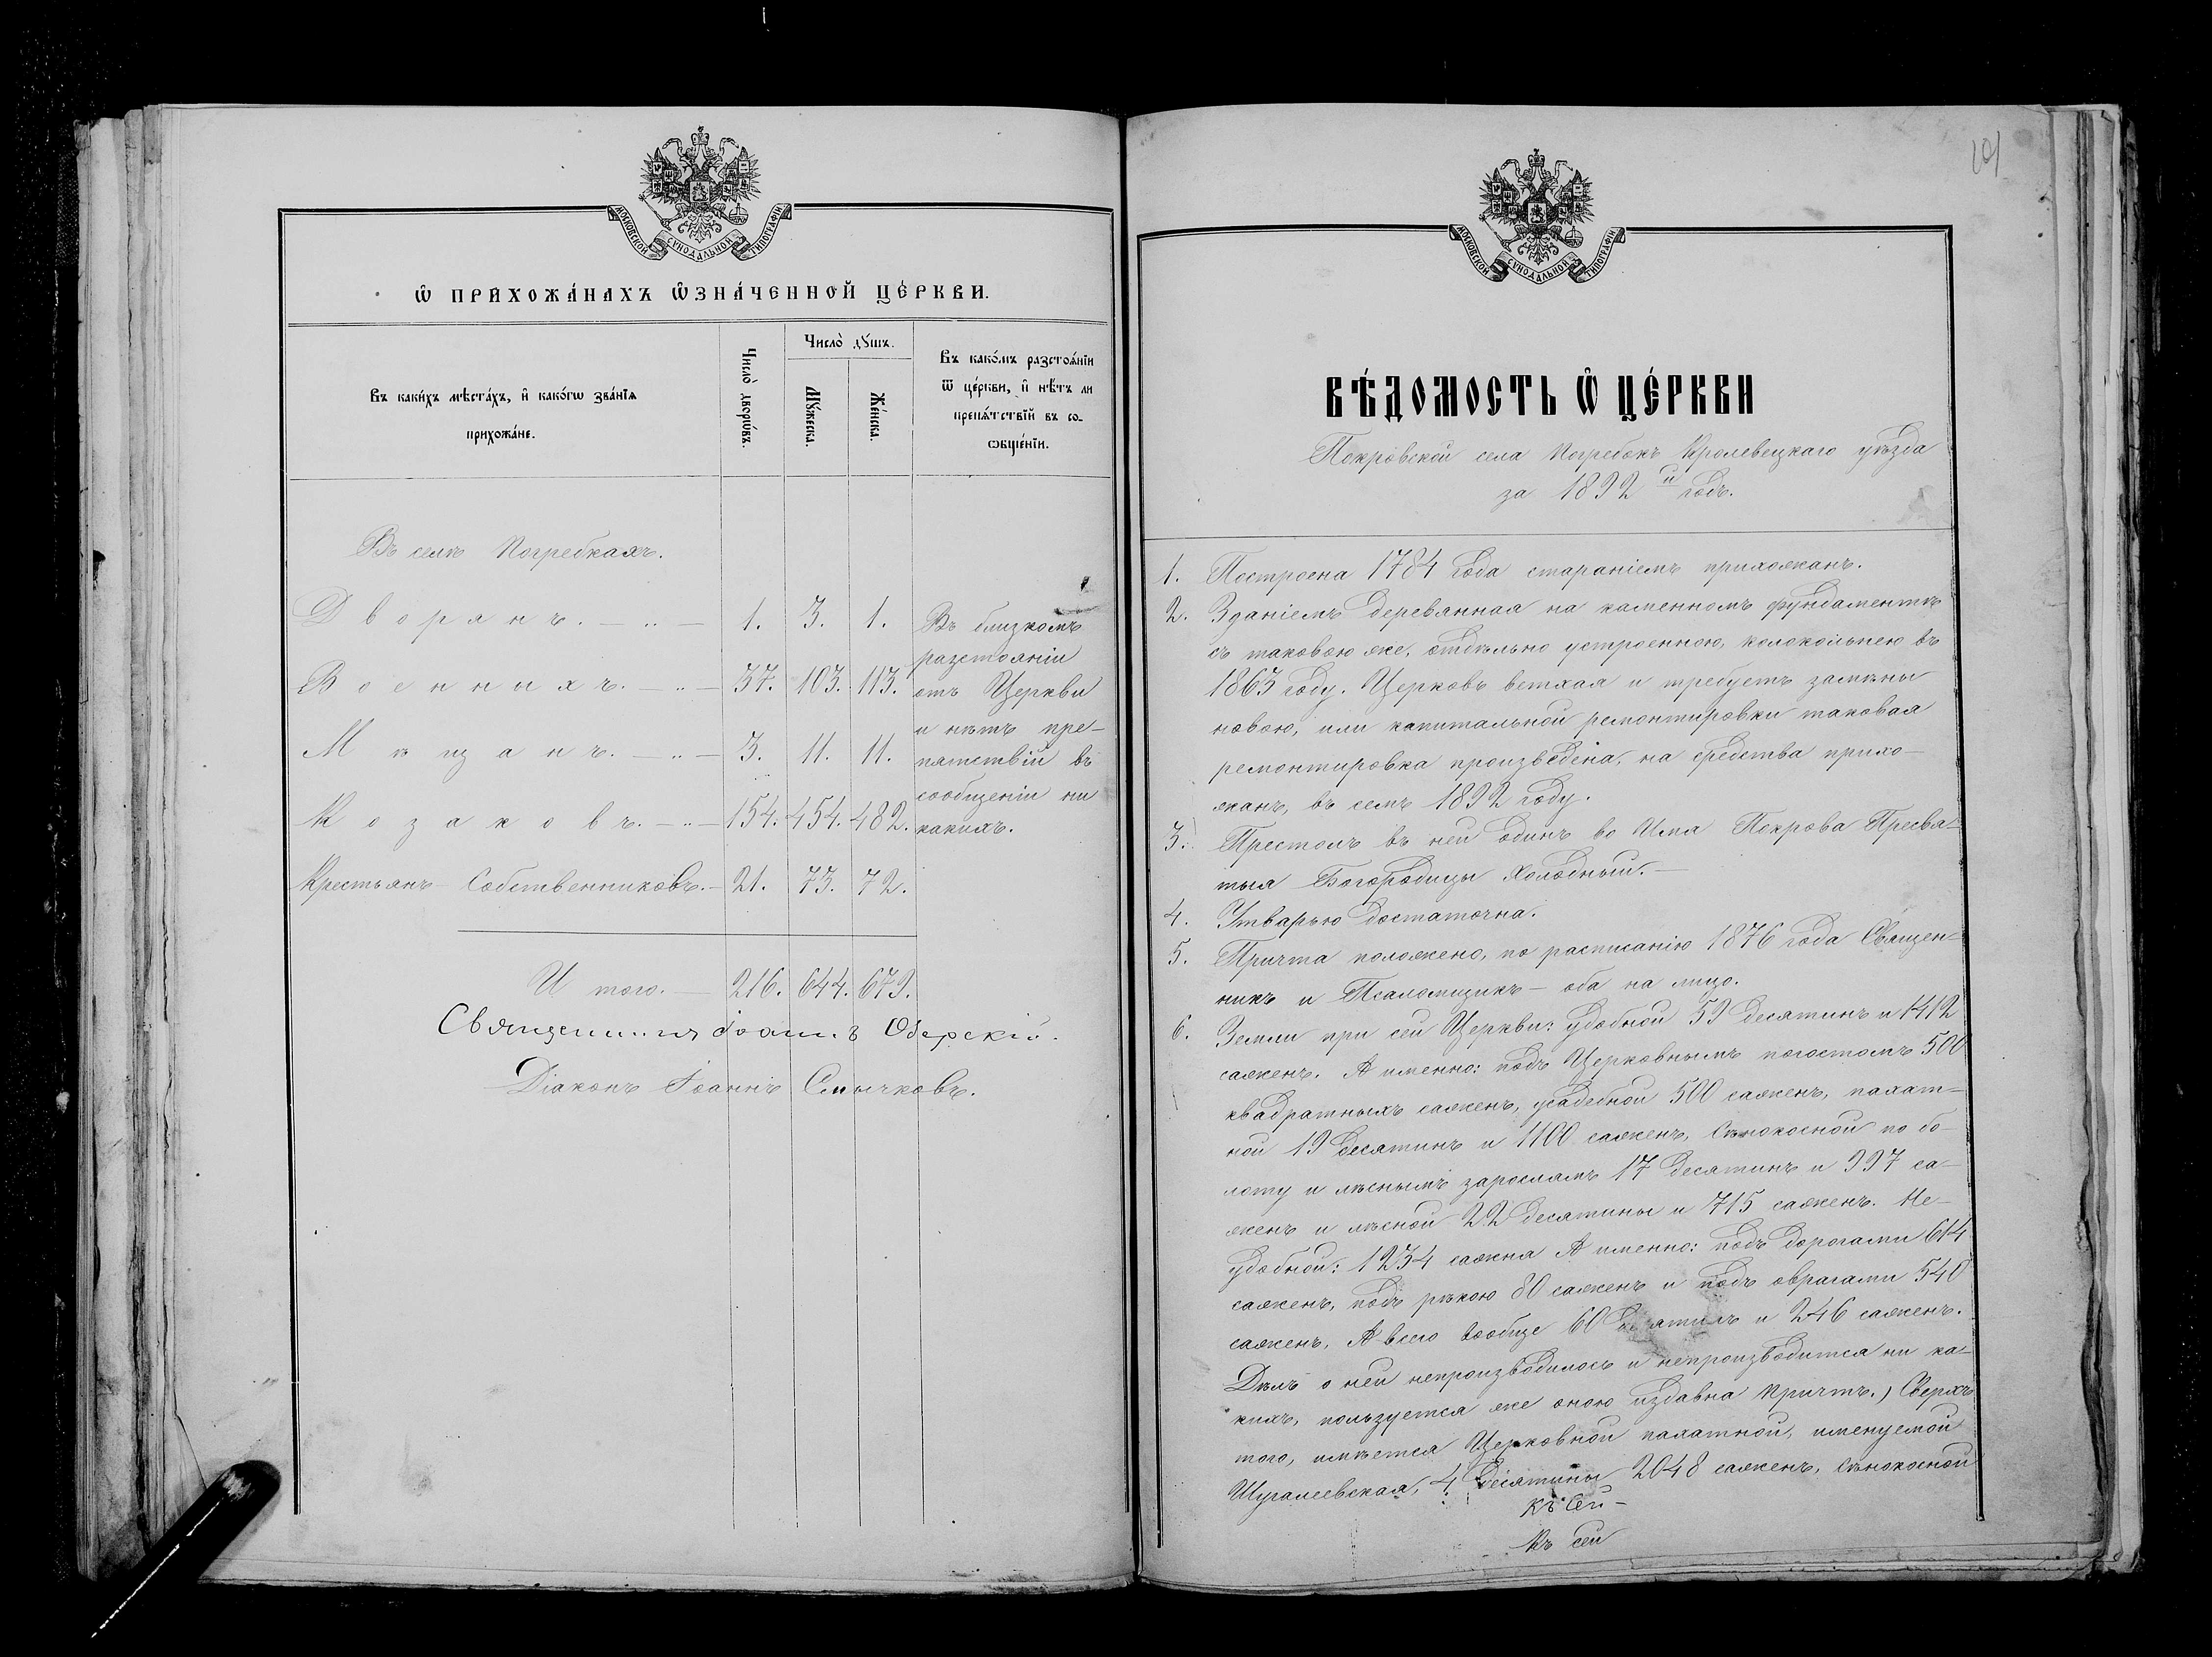 МОСКОВСКОЙ СУНОДАЛЬНОЙ ТИПОГРАФІИ
Ѡ ПРИХОЖА́НАХЪ ѠЗНА́ЧЕННОЙ ЦЕ́РКВИ.
Въ каки́хъ мѣста́хъ, и како́гѡ зва́нїѧ
прихожа́не.
Число̀ дворѡ́въ.
Число̀ дꙋ́шъ.
Мꙋ́жеска.
Же́нска.
Въ како́мъ разстоѧ́нїи
ѿ це́ркви, и нѣ́тъ ли
препѧ́тствїй въ со-
ѻбще́нїи.
Въ селѣ Погребкахъ.
Дворянъ. — „ — 1. 3. 1.
Военныхъ. — „ — 37. 103. 113.
Мѣщанъ. — „ — 3. 11. 11.
Козаковъ. — „ — 154. 454. 482.
Крестьянъ Собственниковъ. — 21. 73. 72.
Въ близкомъ
разстояніи
отъ Церкви
и нѣтъ пре-
пятствій въ
сообщеніи ни
какихъ.
И того. — 216. 644. 679.
Священникъ Іоаннъ Озерскій.
Діаконъ Іоаннъ Смычковъ.
101
МОСКОВСКОЙ СУНОДАЛЬНОЙ ТИПОГРАФІИ
ВѢ́ДОМОСТЬ Ѡ ЦЕ́РКВИ
Покровской села Погребокъ Кролевецкаго уѣзда
за 1892 й годъ.
1. Построена 1784 года стараніемъ прихожанъ.
2. Зданіемъ деревянная на каменномъ фундаментѣ
съ таковою же, отдѣльно устроенною, колокольнею въ
1863 году. Церковь ветхая и требуетъ замѣны
новою, или капитальной ремонтировки таковая
ремонтировка произведена, на средства прихо-
жанъ, въ семъ 1892 году.
3. Престолъ въ ней одинъ во Имя Покрова Пресвя-
тыя Богородицы Холодный. —
4. Утварью достаточна.
5. Причта положено, по расписанію 1876 года Священ-
никъ и Псаломщикъ — оба на лицо.
6. Земли при сей Церкви: удобной 59 десятинъ и 1412
саженъ. А именно: подъ Церковнымъ погостомъ 500
квадратныхъ саженъ, усадебной 500 саженъ, пахат-
ной 19 десятинъ и 1100 саженъ, сѣнокосной по бо-
лоту и лѣснымъ зарослямъ 17 десятинъ и 997 са-
женъ и лѣсной 22 десятины и 715 саженъ. Не-
удобной: 1234 сажня А именно: подъ дорогами 614
саженъ, подъ рѣкою 80 саженъ и подъ оврагами 540
саженъ, А всего вообще 60 десятинъ и 246 саженъ.
Дѣлъ о ней непроизводилось и непроизводится ни ка-
кихъ, пользуется же оною издавна Причтъ.) Сверхъ
того, имѣется Церковной пахатной, именуемой
Шугалеевская, 4 десятины 2048 саженъ, сѣнокосной
къ сей —
Къ сей